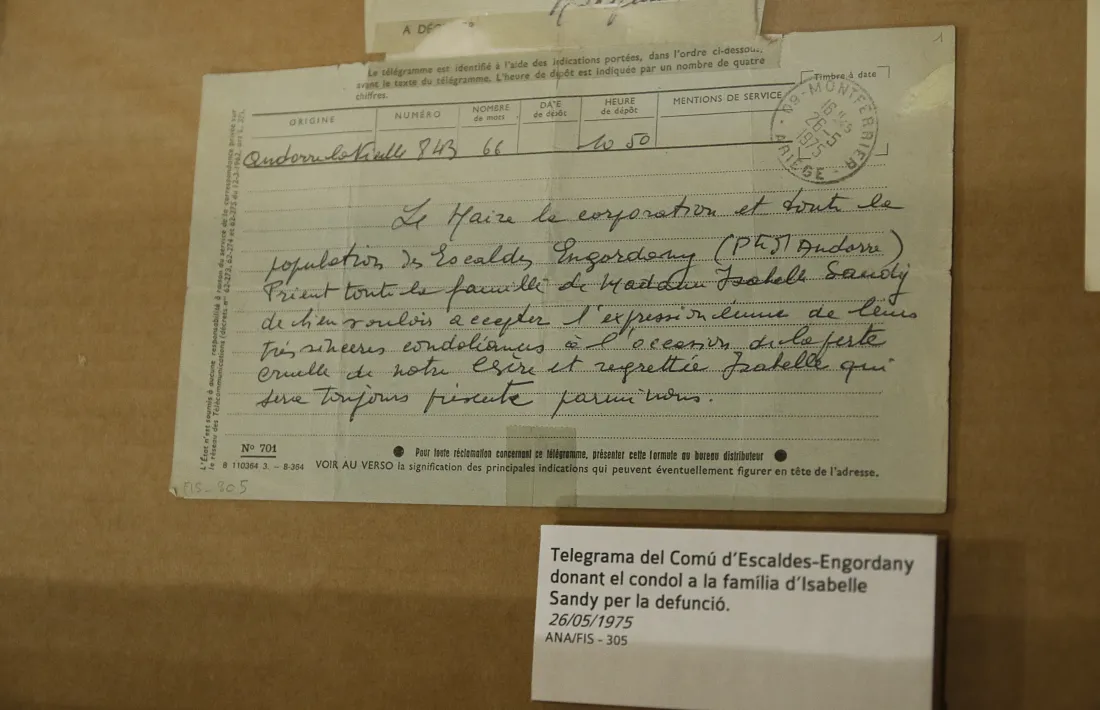 A DÉC
Le télégramme est identifié à l'aide des indications portées, dans l'ordre ci-dessous,
avant le texte du télégramme. L'heure de dépôt est indiquée par un nombre de quatre
chiffres.
1
Timbre à date
ORIGINE NUMÉRO NOMBRE de mots DATE de dépôt HEURE de dépôt MENTIONS DE SERVICE
Andorre la Vieille 843 66 10 50
09 - MONTFERRIER
16 H 45
26-5
1975
ARIÈGE
Le Maire la corporation et toute la
population des Escaldes Engordany (Pté d'Andorre)
Prient toute la famille de Madame Isabelle Sandy
de bien vouloir accepter l'expression émue de leurs
très sincères condoléances à l'occasion de la perte
cruelle de notre chère et regrettée Isabelle qui
sera toujours présente parmi nous.
L'État n'est soumis à aucune responsabilité à raison du service de la correspondance privée sur
le réseau des Télécommunications (décrets nos 62-273, 62-274 et 62-275 du 12-3-1962, art.
N° 701
B 110364 3. - B-364
Pour toute réclamation concernant ce télégramme, présenter cette formule au bureau distributeur
VOIR AU VERSO la signification des principales indications qui peuvent éventuellement figurer en tête de l'adresse.
FIS - 305
Telegrama del Comú d'Escaldes-Engordany
donant el condol a la família d'Isabelle
Sandy per la defunció.
26/05/1975
ANA/FIS - 305